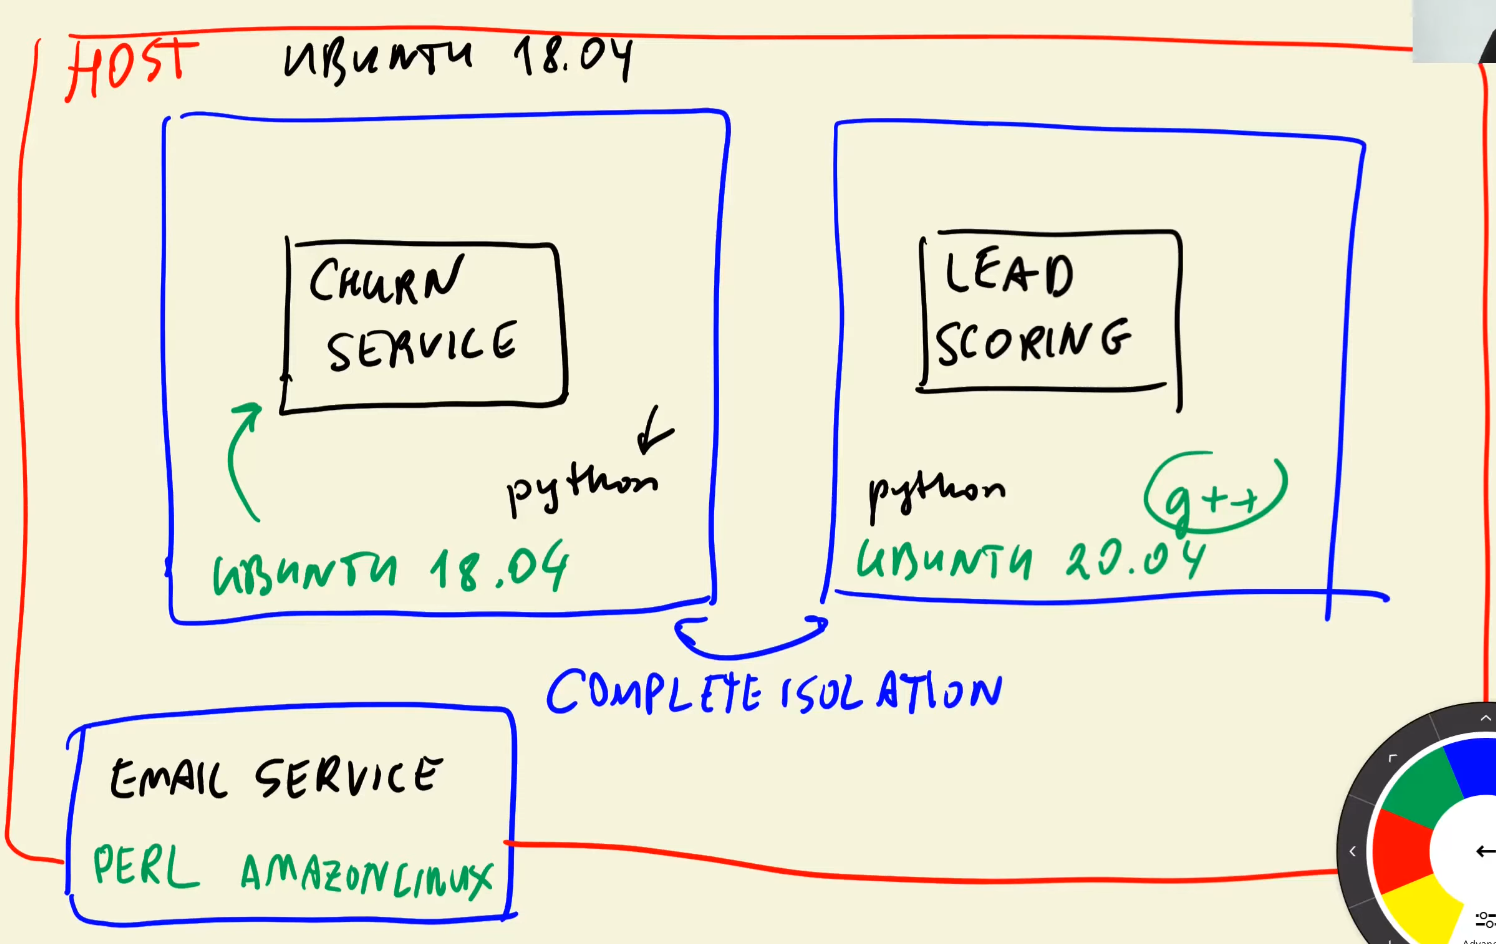 HOST UBUNTU 18.04
CHURN
SERVICE
python
UBUNTU 18.04
LEAD
SCORING
python g++
UBUNTU 20.04
COMPLETE ISOLATION
EMAIL SERVICE
PERL AMAZON LINUX